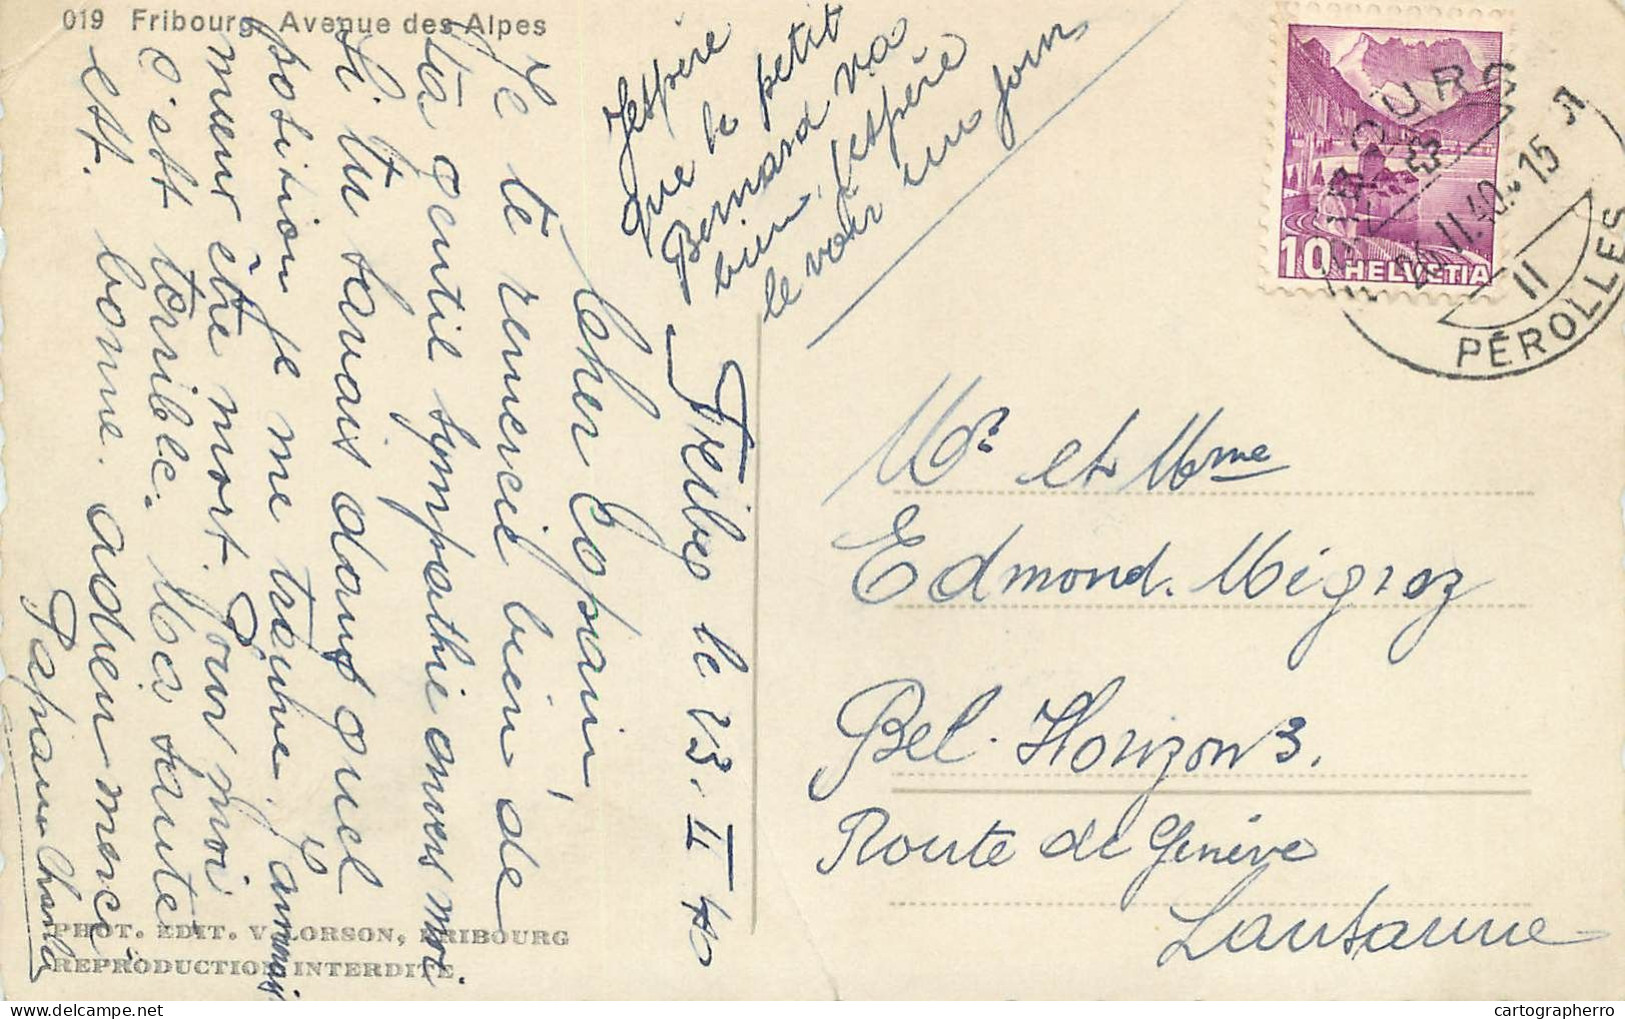 019 Fribourg Avenue des Alpes
J'espère
que le petit
Bernard va
bien, j'espère
le voir un jour
Fribg le 23. II 40
Cher Copain,
Je te remercie bien de
ta gentil sympathie envers moi
Si tu savais dans quel
position je me trouve. J'aimais
mieux être mort. Pour moi
c'est terrible. Ma santé
est bonne. adieu merci
PHOT. EDIT. V. LORSON, FRIBOURG
REPRODUCTION INTERDITE.
10 HELVETIA
FRIBOURG
II.40.-15
II
PÉROLLES
Mr et Mme
Edmond. Mégroz
Bel. Horizon 3.
Route de Genève
Lausanne
cartographerro